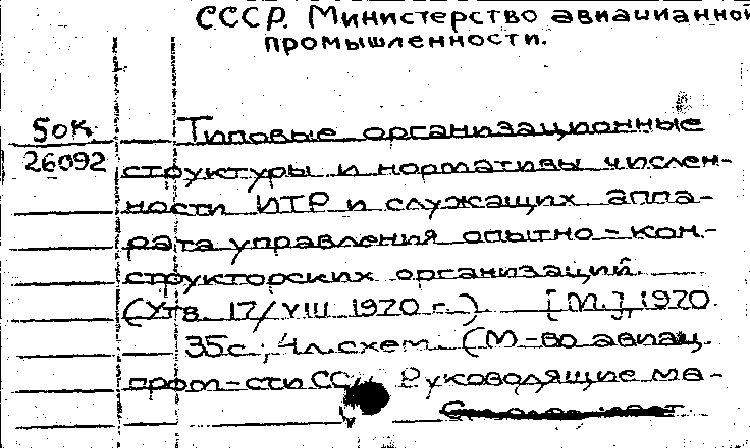 СССР. Министерство авиационной
промышленности.
50К Типовые организационные
26092 структуры и нормативы числен-
ности ИТР и служащих аппа-
рата управления опытно-кон-
структорских организаций.
(Утв. 17/VIII 1970 г.) [М.], 1970.
35с.; 4л.схем. (М-во авиац.
пром-сти СССР. Руководящие ма-